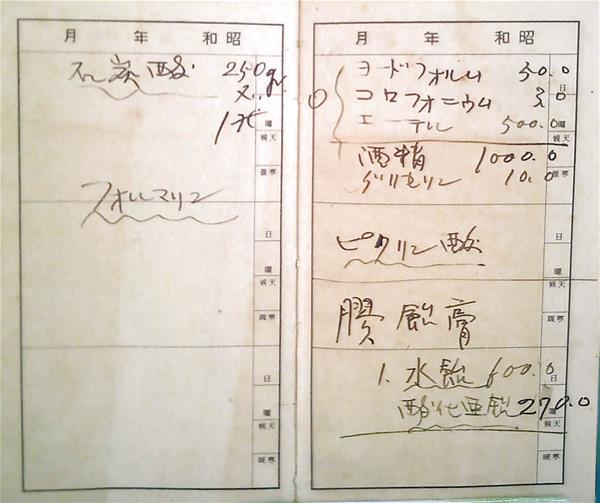 昭和 年 月
ヨードフォルム 50.0
コロフォニウム
エーテル 500.0
酒精 1000.0
グリセリン 10.0
ピクリン酸
膠飴膏
1. 水飴 600.0
酸化亜鉛 270.0
日
曜
天候
寒暖
日
曜
天候
寒暖
日
曜
天候
寒暖
昭和 年 月
石炭酸 250gr
フォルマリン
曜
天候
寒暖
日
曜
天候
寒暖
日
曜
天候
寒暖